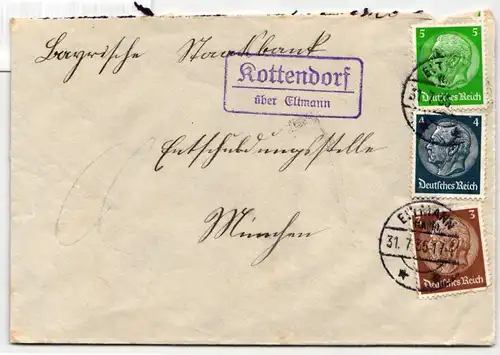 Bayrische Staatsbank
Kottendorf
über Eltmann
Entschuldungsstelle
München
5 5
Deutsches Reich
4 4
Deutsches Reich
3
Deutsches Reich
ELTMANN
31. 7. 35.